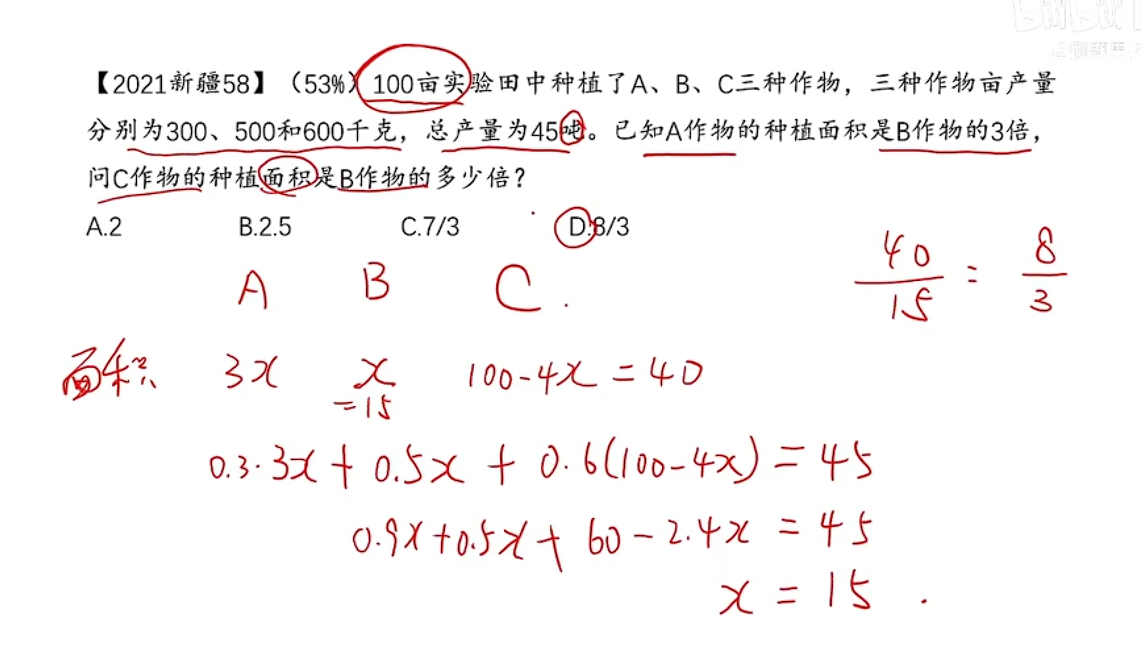 BiliBili
【2021新疆58】（53%）100亩实验田中种植了A、B、C三种作物，三种作物亩产量
分别为300、500和600千克，总产量为45吨。已知A作物的种植面积是B作物的3倍，
问C作物的种植面积是B作物的多少倍？
A.2 B.2.5 C.7/3 D.8/3
40/15 = 8/3
A B C
面积 3x x 100-4x=40
=15
0.3·3x+0.5x+0.6(100-4x)=45
0.9x+0.5x+60-2.4x=45
x=15